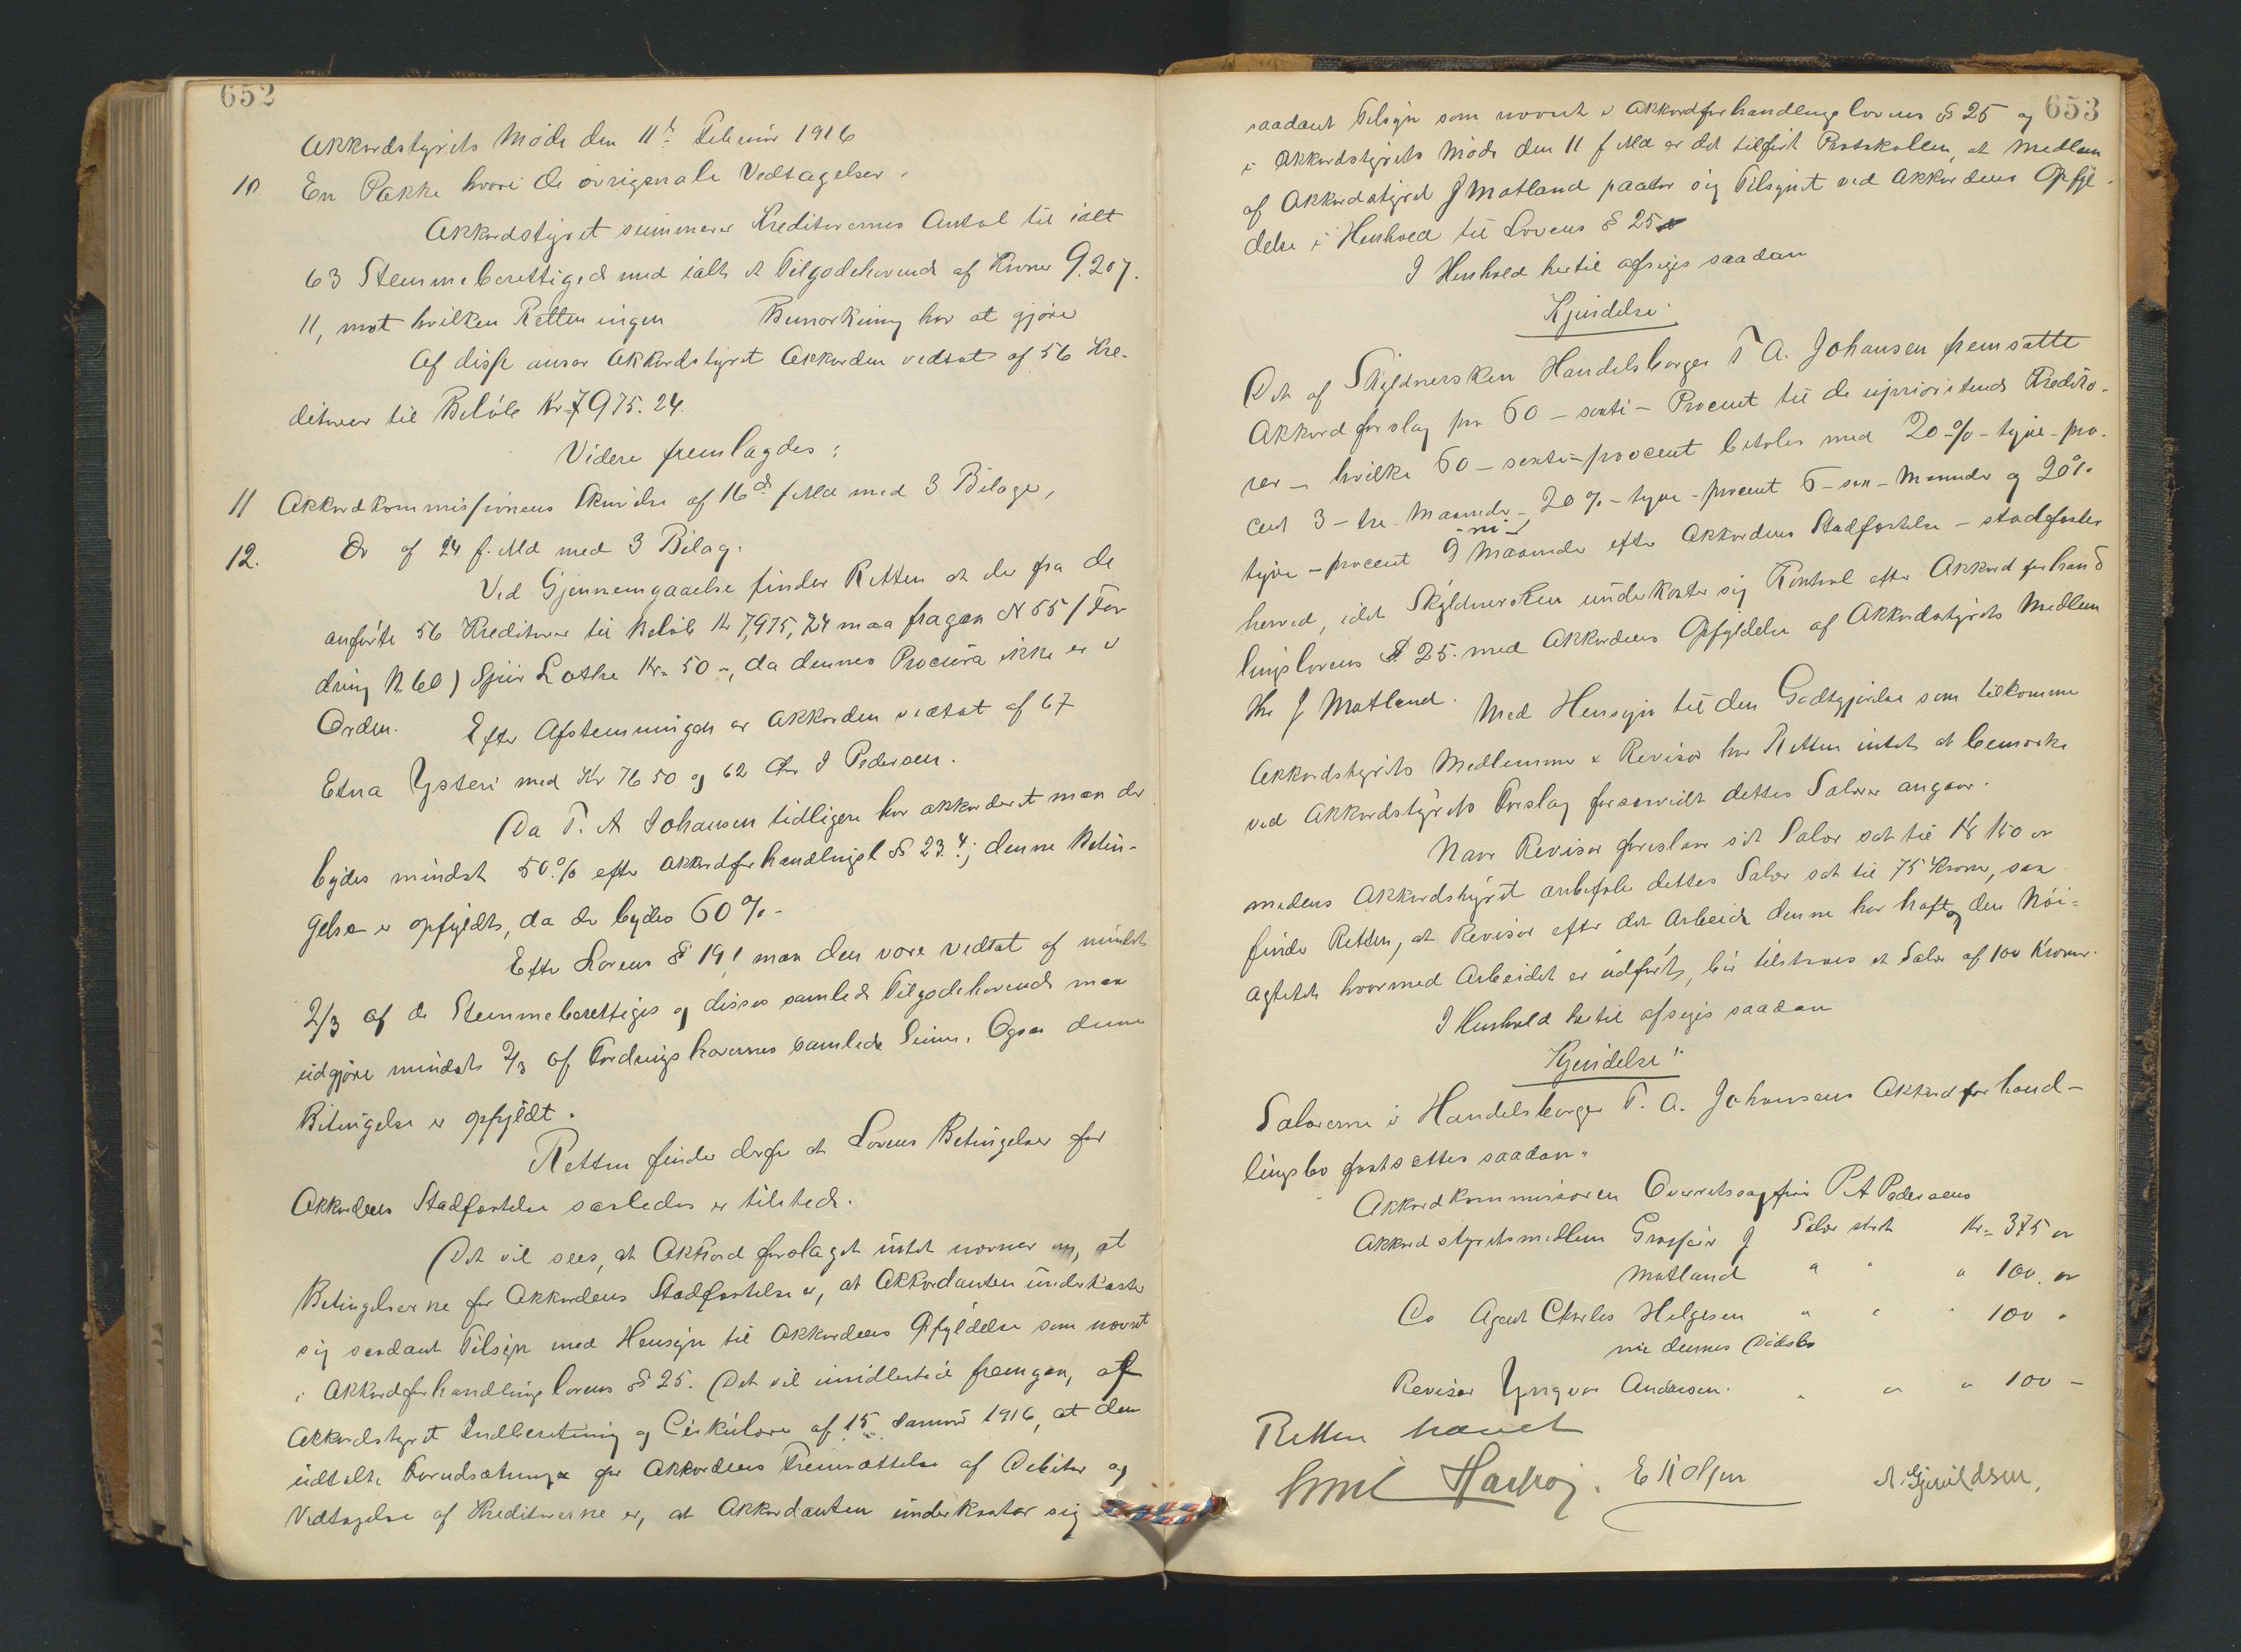 652
Akkordstyrets Møde den 11te Februar 1916
10. En Pakke hvori de originale Vedtagelser.
Akkordstyret summerer Kreditorernes Antal til ialt
63 Stemmeberettigede med ialt et Tilgodehavende af Kroner 9.207.
11, mot hvilken Retten ingen Bemærkning har at gjøre
Af disse anser Akkordstyret Akkorden vedtat af 56 Kre-
ditorer til Beløb Kr. 7975.24
Videre fremlagdes:
11 Akkordkommissionens Skrivelse af 16de f. Md med 3 Bilage,
12. Do af 24 f. Md med 3 Bilag.
Ved Gjennemgaaelse finder Retten at der fra de
anførte 56 Kreditorer til Beløb Kr 7,975,24 maa fragaa N 55 (For
dring N. 60) Lothe Kr. 50 -, da dennes Procura ikke er i
Orden. Efter Afstemningen er Akkorden vedtat af 67
Etna Ysteri med Kr 76 50 og 62 Chr J Pedersen.
Da T. A Johansen tidligere har akkorderet maa der
bydes mindst 50% efter Akkordforhandlingsl § 23.4; denne Betin-
gelse er opfyldt, da der bydes 60% -
Efter Lovens § 19.1 maa den være vedtat af mindst
2/3 af de Stemmeberettiges og disses samlede Tilgodehavende maa
udgjøre mindst 2/3 af Fordringshavernes samlede Sum. Ogsaa denne
Betingelse er opfyldt.
Retten finder derfor at Lovens Betingelser for
Akkordens Stadfæstelse saaledes er tilstede.
Det vil sees, at Akkordforslaget intet nævner om, at
Betingelserne for Akkordens Stadfæstelse er, at Akkordanten underkaster
sig saadant Tilsyn med Hensyn til Akkordens Opfyldelse som nævnt
i Akkordforhandlingslovens § 25. Det vil imidlertid fremgaa, af
Akkordstyret Indberetning og Cirkulære af 15 Januar 1916, at den
udtalte Forudsætning for Akkordens Fremsættelse af Debitor og
Vedtagelse af Kreditorerne er, at Akkordanten underkaster sig
653
saadant Tilsyn som nævnt i Akkordforhandlingslovens § 25 og
i Akkordstyrets Møde den 11 f Md er det tilført Protokollen, at Medlem
af Akkordstyret J Matland paatar sig Tilsynet ved Akkordens Opfyl-
delse i Henhold til Lovens § 25
I Henhold hertil afsiges saadan
Kjendelse:
Det af Skyldnersken Handelsborger T A. Johansen fremsatte
Akkordforslag paa 60 - sexti - Procent til de uprioriterede Kredito-
rer - hvilke 60 - sexti - procent betales med 20 % - tyve - pro-
cent 3 - tre Maaneder - 20 % - tyve - procent 6 - sex - Maaneder og 20%
tyve - procent 9 - ni - Maaneder efter Akkordens Stadfæstelse - stadfæstes
herved, idet Skyldnersken underkaster sig Kontrol efter Akkordforhand
lingslovens § 25. med Akkordens Opfyldelse af Akkordstyrets Medlem
Hr J Matland. Med Hensyn til den Godtgjørelse som tilkommer
Akkordstyrets Medlemmer & Revisor har Retten intet at bemærke
ved Akkordstyrets Forslag forsaavidt dettes Salær angaar.
Naar Revisor foreslaar sit Salær sat til Kr 150 or
medens Akkordstyret anbefaler dettes Salær sat til 75 Kroner, saa
finder Retten, at Revisor efter det Arbeide denne har haft og den Nøi-
agtighed hvormed Arbeidet er udført, bør tilstaaes et Salær af 100 Kroner.
I Henhold hertil afsiges saadan
Kjendelse:
Salærerne i Handelsborger T. A. Johansens Akkordforhand-
lingsbo fastsættes saadan:
Akkordkommissæren Overretssagfører P A Pedersens
Salær Kr. 375 or
Akkordstyretsmedlem Grosserer J
Matland " " " 100. or
Do Agent Charles Helgesen " " " 100 "
nu dennes Dødsbo
Revisor Yngvar Andersen. " " " 100 -
Retten hævet
E Kolsen